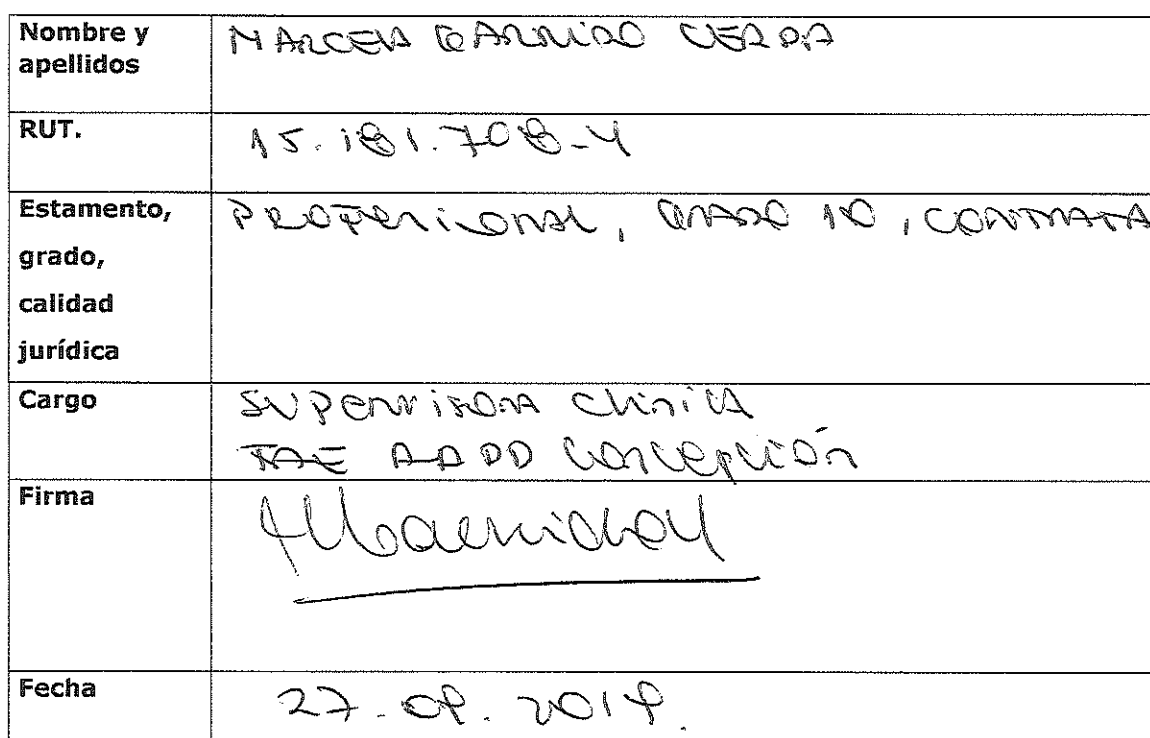 Nombre y apellidos
MARCELA GARRIDO CERDA
RUT.
15.181.708-4
Estamento,
grado,
calidad
jurídica
PROFESIONAL, GRADO 10, CONTRATA
Cargo
SUPERVISORA CLÍNICA
TAE AADD Concepción
Firma
Fecha
27.08.2018.